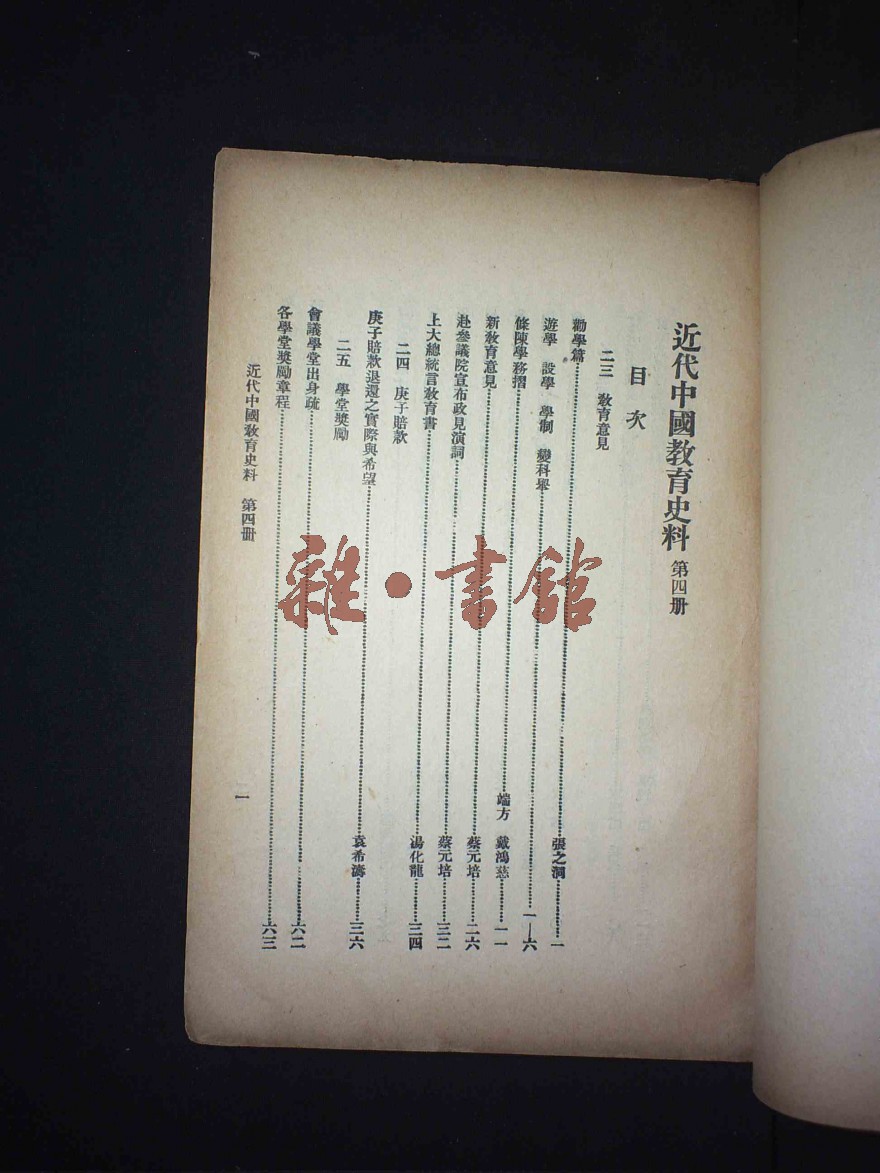 近代中國教育史料 第四册
目次
二三 教育意見
勸學篇……張之洞……一
遊學 設學 學制 變科舉……一—六
條陳學務摺……端方 戴鴻慈……一一
新教育意見……蔡元培……二六
赴參議院宣布政見演詞……蔡元培……三二
上大總統言教育書……湯化龍……三四
二四 庚子賠款
庚子賠款退還之實際與希望……袁希濤……三六
二五 學堂獎勵
會議學堂出身疏……六二
各學堂獎勵章程……六三
近代中國教育史料 第四册
一
雜·書館